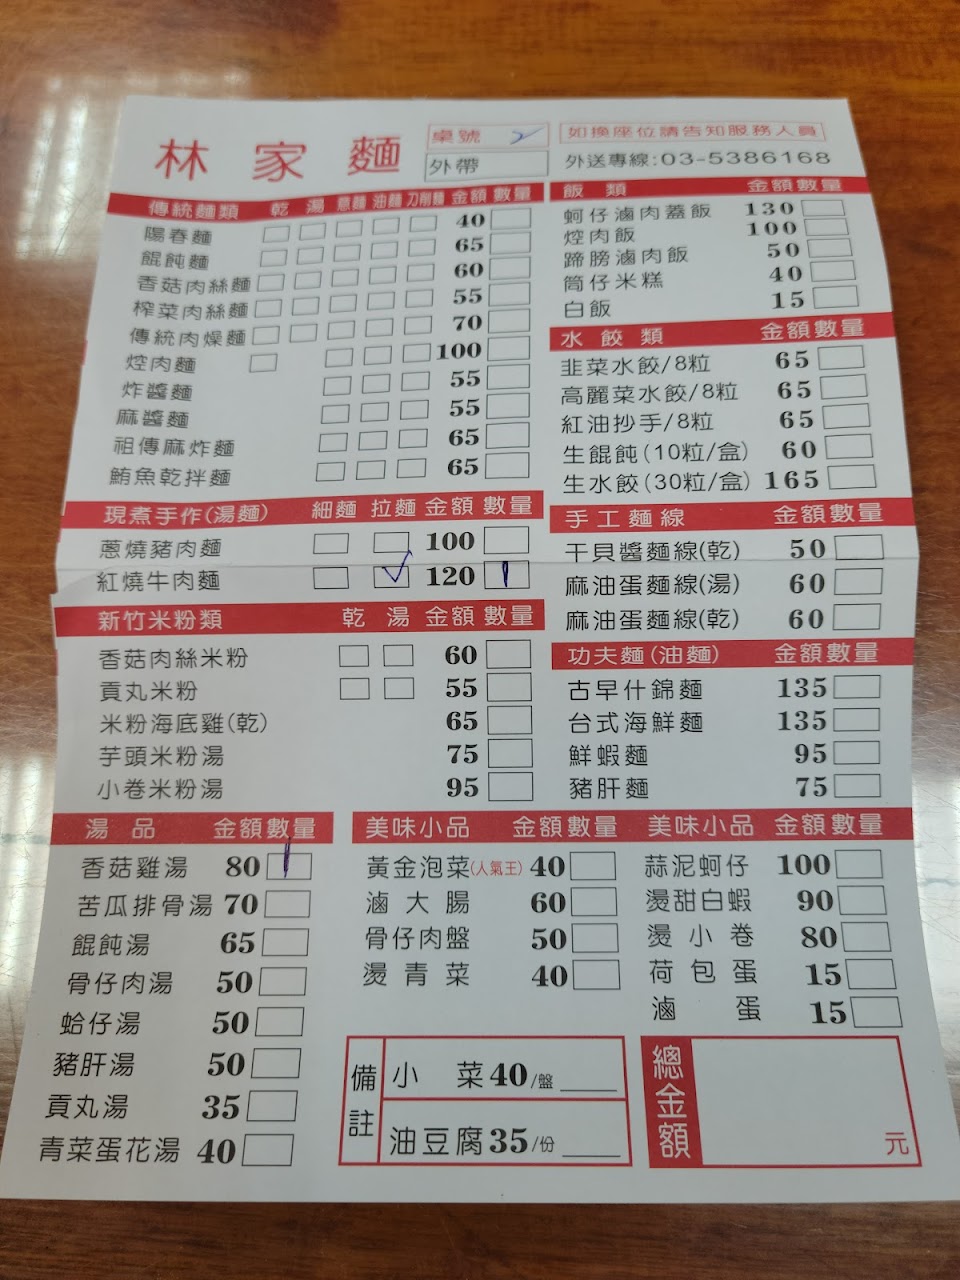 林家麵
桌號 2
外帶
如換座位請告知服務人員
外送專線:03-5386168
傳統麵類 乾 湯 意麵 油麵 刀削麵 金額 數量
陽春麵 40
餛飩麵 65
香菇肉絲麵 60
榨菜肉絲麵 55
傳統肉燥麵 70
焢肉麵 100
炸醬麵 55
麻醬麵 55
祖傳麻炸麵 65
鮪魚乾拌麵 65
現煮手作(湯麵) 細麵 拉麵 金額 數量
蔥燒豬肉麵 100
紅燒牛肉麵 ✓ 120 1
新竹米粉類 乾 湯 金額 數量
香菇肉絲米粉 60
貢丸米粉 55
米粉海底雞(乾) 65
芋頭米粉湯 75
小卷米粉湯 95
飯類 金額數量
蚵仔滷肉蓋飯 130
焢肉飯 100
蹄膀滷肉飯 50
筒仔米糕 40
白飯 15
水餃類 金額數量
韭菜水餃/8粒 65
高麗菜水餃/8粒 65
紅油抄手/8粒 65
生餛飩(10粒/盒) 60
生水餃(30粒/盒) 165
手工麵線 金額數量
干貝醬麵線(乾) 50
麻油蛋麵線(湯) 60
麻油蛋麵線(乾) 60
功夫麵(油麵) 金額數量
古早什錦麵 135
台式海鮮麵 135
鮮蝦麵 95
豬肝麵 75
湯品 金額數量
香菇雞湯 80 1
苦瓜排骨湯 70
餛飩湯 65
骨仔肉湯 50
蛤仔湯 50
豬肝湯 50
貢丸湯 35
青菜蛋花湯 40
美味小品 金額數量
黃金泡菜(人氣王) 40
滷大腸 60
骨仔肉盤 50
燙青菜 40
美味小品 金額數量
蒜泥蚵仔 100
燙甜白蝦 90
燙小卷 80
荷包蛋 15
滷蛋 15
備註
小菜40/盤
油豆腐35/份
總金額
元